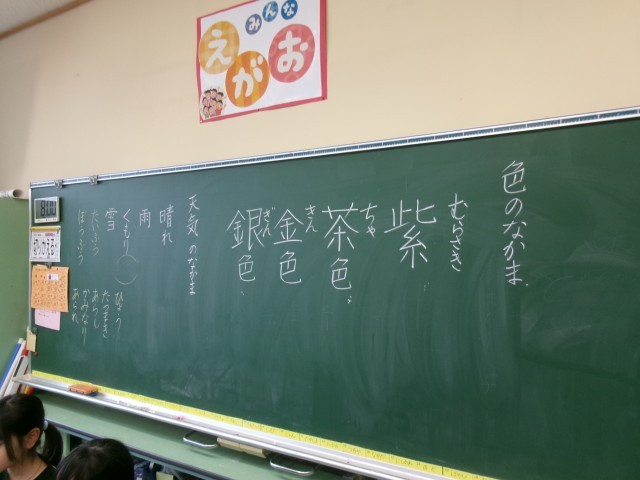 みんな
えがお
色のなかま
むらさき
紫
ちゃ
茶色
きん
金色
ぎん
銀色
天気のなかま
晴れ
雨
くもり( )
雪
たいふう
ぼうふう
ひょう
たつまき
あらし
かみなり
あられ